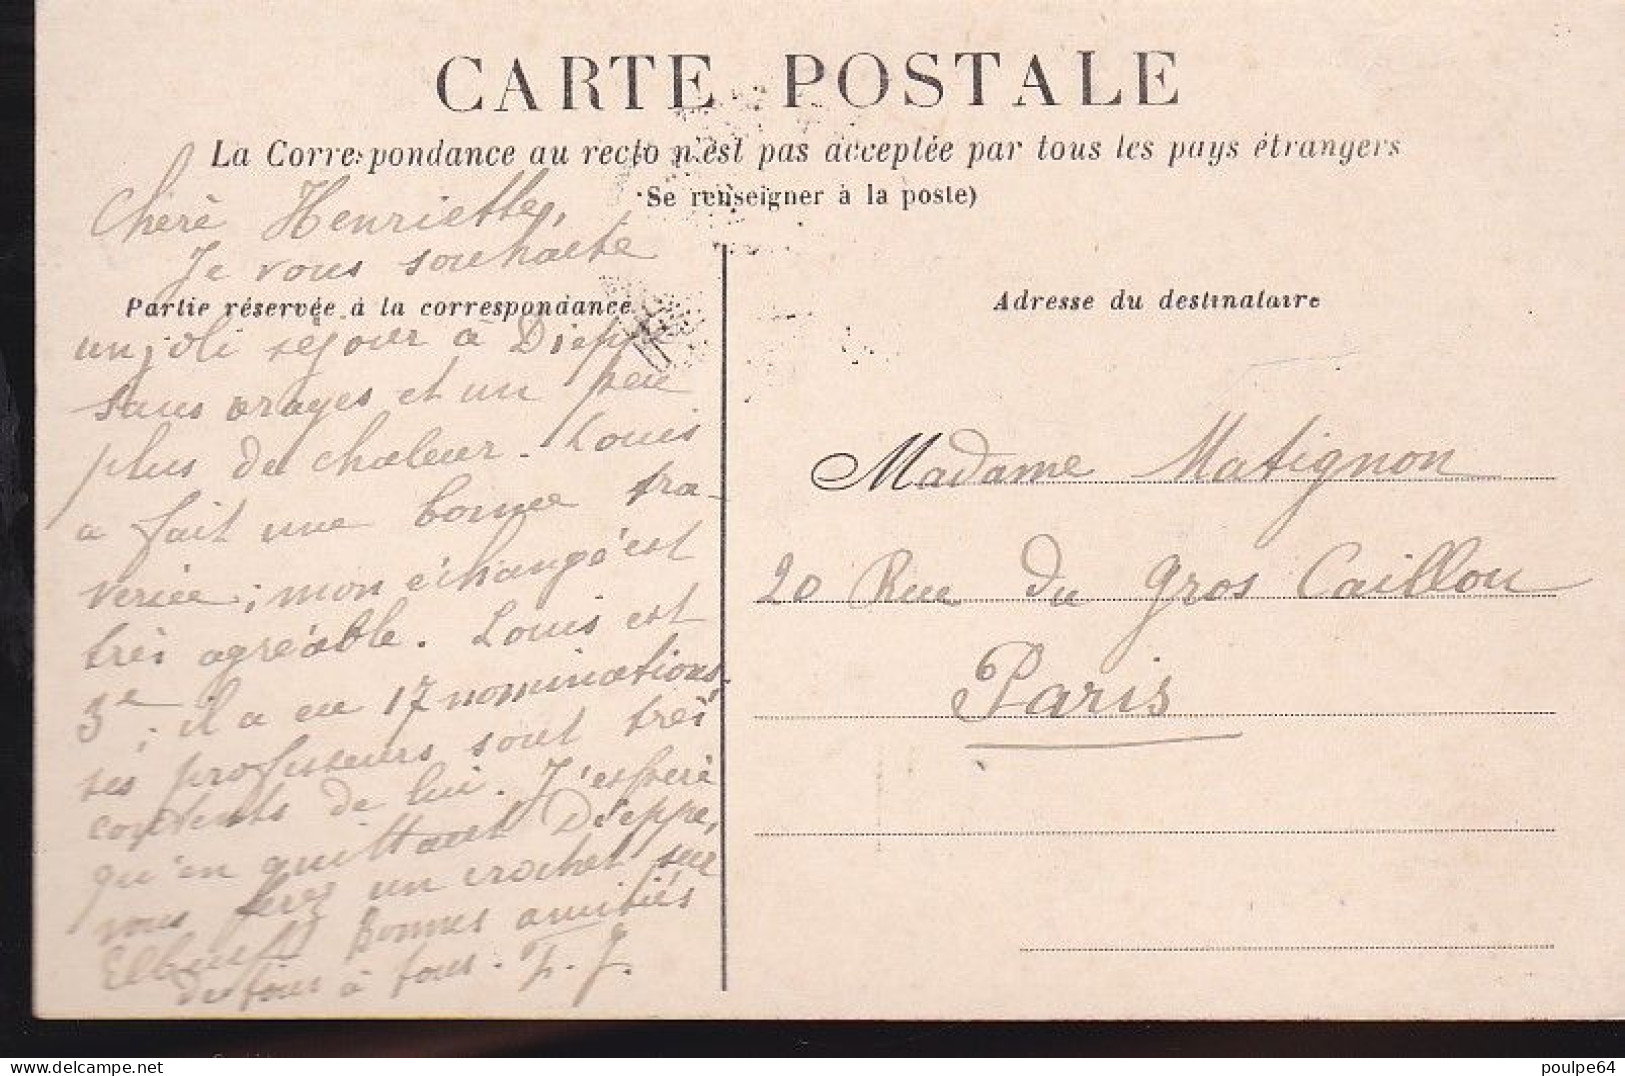 CARTE POSTALE
La Correspondance au recto n'est pas acceptée par tous les pays étrangers
(Se renseigner à la poste)
Chère Henriette,
Je vous souhaite
Partie réservée à la correspondance
Adresse du destinataire
un joli séjour à Dieppe
sans orages et un peu
plus de chaleur. Louis
a fait une bonne tra-
versée ; mon échange est
très agréable. Louis est
3e ; il a eu 17 nominations.
ses professeurs sont très
contents de lui. J'espère
qu'en quittant Dieppe,
vous ferez un crochet sur
Elbeuf. Bonnes amitiés
de tous à tous.
Madame Matignon
20 Rue du Gros Caillou
Paris
poulpe64